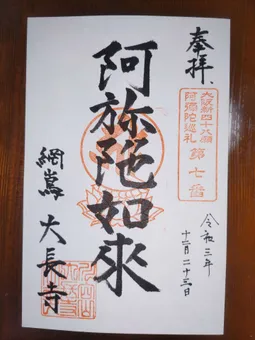 奉拝
大阪新四十八願
阿弥陀巡礼
第七番
令和三年
十二月二十三日
阿弥陀如來
網島 大長寺